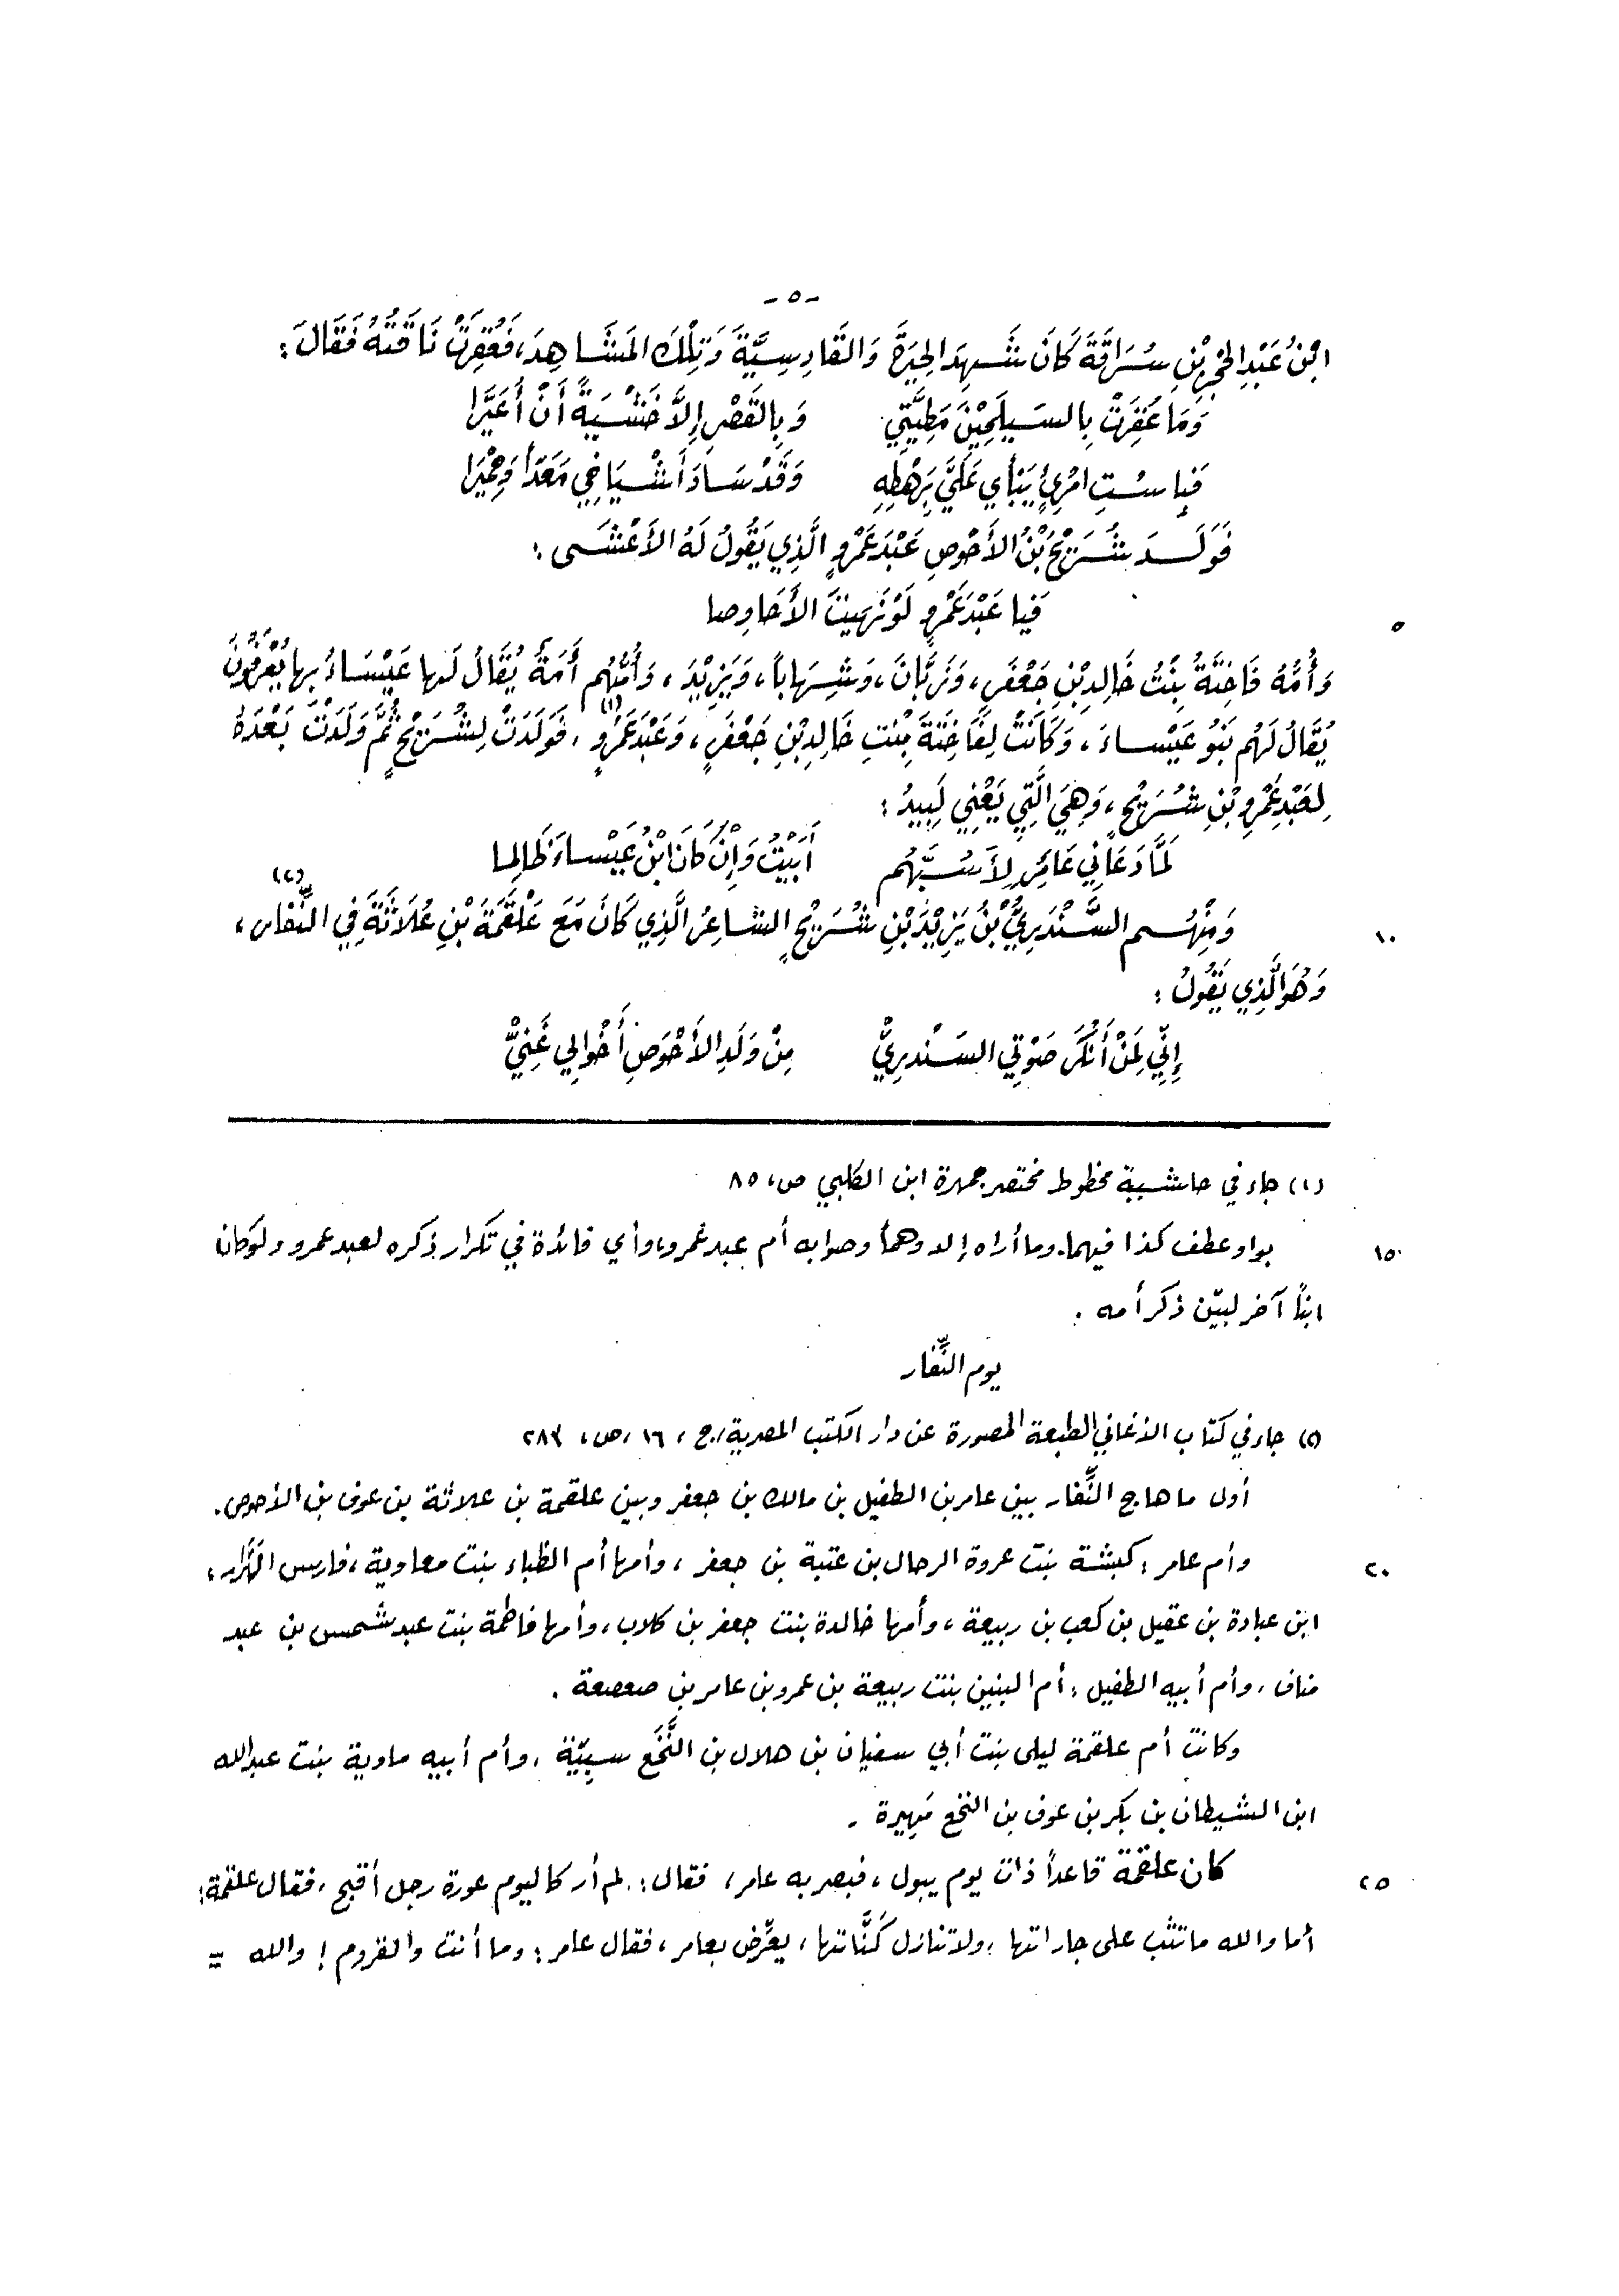 -٥-
ابْنُ عَبْدِ الحُجْرِ بْنِ سُرَاقَةَ كَانَ شَهِدَ الحِيرَةَ وَالقَادِسِيَّةَ وَتِلْكَ المَشَاهِدَ، فَعُقِرَتْ نَاقَتُهُ فَقَالَ:
وَمَا عُقِرَتْ بِالسَيلَحِيْنَ مَطِيَّتِي وَبِالقَصْرِ إِلاَّ خَشْيَةً أَنْ أُعَيَّرا
فَبِاسْتِ امْرِئٍ يَبْأَي عَلَيَّ بِرَهْطِهِ وَقَدْ سَادَ أَشْيَاخِي مَعَدّاً وَحِمْيَرا
فَوَلَدَ شُرَيْحُ بْنُ الأَحْوصِ عَبْدَ عَمْرٍو الَّذِي يَقُولُ لَهُ الأَعْشَى:
فَيا عَبْدَ عَمْرٍو لَوْ نَهَيتَ الأَحَاوِصا
٥
وَأُمُّهُ فَاخِتَةُ بِنْتُ خَالِدِ بْنِ جَعْفَرٍ، وَزَبَّانَ، وَشِهَاباً، وَيَزِيْدَ، وَأُمُّهُم أَمَةٌ يُقَالُ لَها عَيْسَاءُ بِها يُعْرَفُونَ
يُقَالُ لَهُم بَنُو عَيْساءَ، وَكَانَتْ لِفَاخِتَةَ بِنْتِ خَالِدِ بْنِ جَعْفَرٍ، وَعَبْدَ عَمْرٍو(١)، فَوَلَدَتْ لِشُرَيْحٍ ثُمَّ وَلَدَتْ بَعْدَهُ
لِعَبْدِ عَمْرِو بْنِ شُرَيْحٍ، وَهِيَ الَّتِي يَعْنِي لَبِيدُ:
لَمَّا دَعَانِي عَامِرٌ لِأَسُبَّهُم أَبَيْتُ وَإِنْ كَانَ ابْنُ عَيْساءَ ظَالِما
وَمِنْهُم السَّنْدَرِيُّ بْنُ يَزِيْدَ بْنِ شُرَيْحٍ الشاعِرُ الَّذِي كَانَ مَعَ عَلْقَمَةَ بْنِ عُلَاثَةَ فِي النِّفَارِ(٢)،
١٠
وَهُوَ الَّذِي يَقُولُ:
إِنِّي لِمَنْ أَنْكَرَ صَوْتِي السَنْدرِيُّ مِنْ وَلَدِ الأَحْوَصِ أَخْوالِي غَنِيُّ
(١) جاء في حاشية مخطوط مختصر جمهرة ابن الكلبي ص، ٨٥
بواو عطف كذا فيهما. وما أراه إلا وهماً وصوابه أم عبد عمرو، وأي فائدة في تكرار ذكره لعبد عمرو ولوكان
١٥
ابناً آخر لبيّن ذكر أمه.
يوم النِّفار
(٢) جاء في كتاب الأغاني الطبعة المصورة عن دار الكتب المصرية، ج، ١٦، ص، ٢٨٣
أول ما هاج النِّفار بين عامر بن الطفيل بن مالك بن جعفر وبين علقمة بن علاثة بن عوف بن الأحوص.
وأم عامر: كبشة بنت عروة الرحال بن عتبة بن جعفر، وأمها أم الظباء بنت معاوية، فارس الهَرَّار،
٢٠
ابن عبادة بن عقيل بن كعب بن ربيعة، وأمها خالدة بنت جعفر بن كلاب، وأمها فاطمة بنت عبد شمس بن عبد
مناف، وأم أبيه الطفيل: أم البنين بنت ربيعة بن عمرو بن عامر بن صعصعة.
وكانت أم علقمة ليلى بنت أبي سفيان بن هلال بن النَّخَع سبيَّة، وأم أبيه ماوية بنت عبدالله
ابن الشيطان بن بكر بن عوف بن النخع مَهِيرة.
كان علقمة قاعداً ذات يوم يبول، فبصر به عامر، فقال: لم أر كاليوم عورة رجل أقبح، فقال علقمة:
٢٥
أما والله ما تثب على جاراتها، ولا تنازل كَنَّاتها، يعرِّض بعامر، فقال عامر: وما أنت والقروم! والله =